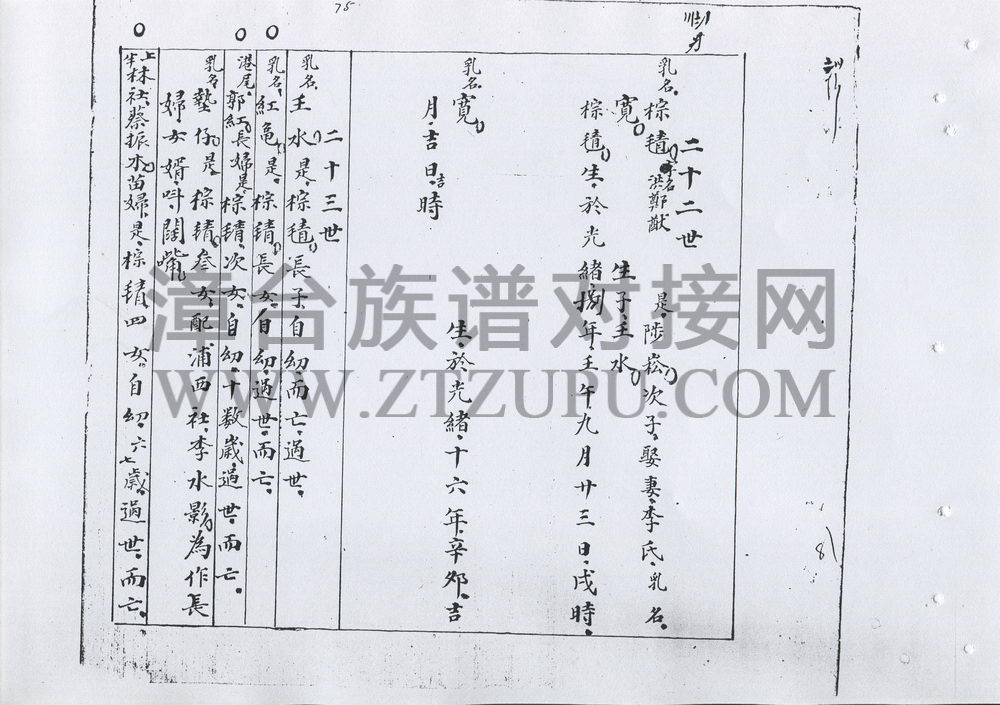 75
81
二十二世
乳名 棕 洪鄭猷 是陟崧次子娶妻李氏乳名
寬 生子王水
棕 生於光緒捌年壬午九月廿三日戌時
乳名 寬 生於光緒十六年辛卯吉
月吉日吉時
二十三世
乳名 王水是棕 長子自幼而亡過世
乳名 紅亀是棕 長女自幼過世而亡
港尾郭紅長婦是棕 次女自幼十数歲過世而亡
乳名 塾仔是棕 叁女配浦西社李水影為作長
婦女婿呌闊嘴
上半林社蔡振水苗婦是棕 四女自幼六七歲過世而亡
漳台族谱对接网
WWW.ZTZUPU.COM